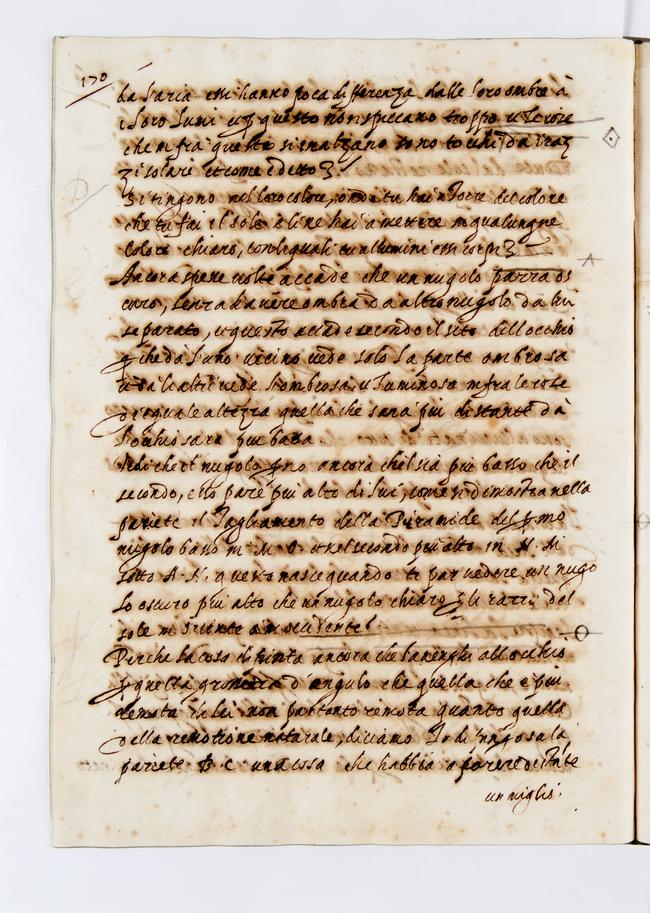 170
da l'aria essi hanno poca differenza dalle loro ombre à
i loro lumi e questo non spiccano troppo
che infra questo s'inalzano sono tochi da i raz
zi solari et come è detto
si tingono nel loro colore, onde tu hai a torre del colore
che tu fai il sole e li ne hai a mettere in qualunque
colore chiaro, con li quali tu allumini essi corpi
Ancora spesse volte accade che un nugolo parra os
curo, senza havere ombra da altro nugolo da lui
separato, e questo accade secondo il sito dell occhio
che da l'uno vicino vede solo la parte ombrosa
e da li altri vede l'ombrosa e luminosa infra le cose
di equale altezza quella che sarà più distante dà
l'occhio sara piu bassa
Vedi che il nugolo p.º ancora che'l sia più basso che il
secondo, esso pare più alto di lui, come si dimostra nella
pariete il tagliamento della Piramide del p.mo
nugolo basso in M. O. et nel secondo più alto in N. M.
sotto A. N. questo nasce quando ti par vedere un nugo
lo oscuro più alto che un nugolo chiaro p li razzi del
sole in oriente o in occidente
Perche la cosa dipinta ancora che la venghi all occhio
p quella grossezza d'angulo che quella che è più
remota di lei non par tanto remota quanto quella
della remotione naturale, diciamo Io dipingo su la
pariete B. C. una cosa che habbia a parere distante
un miglio.